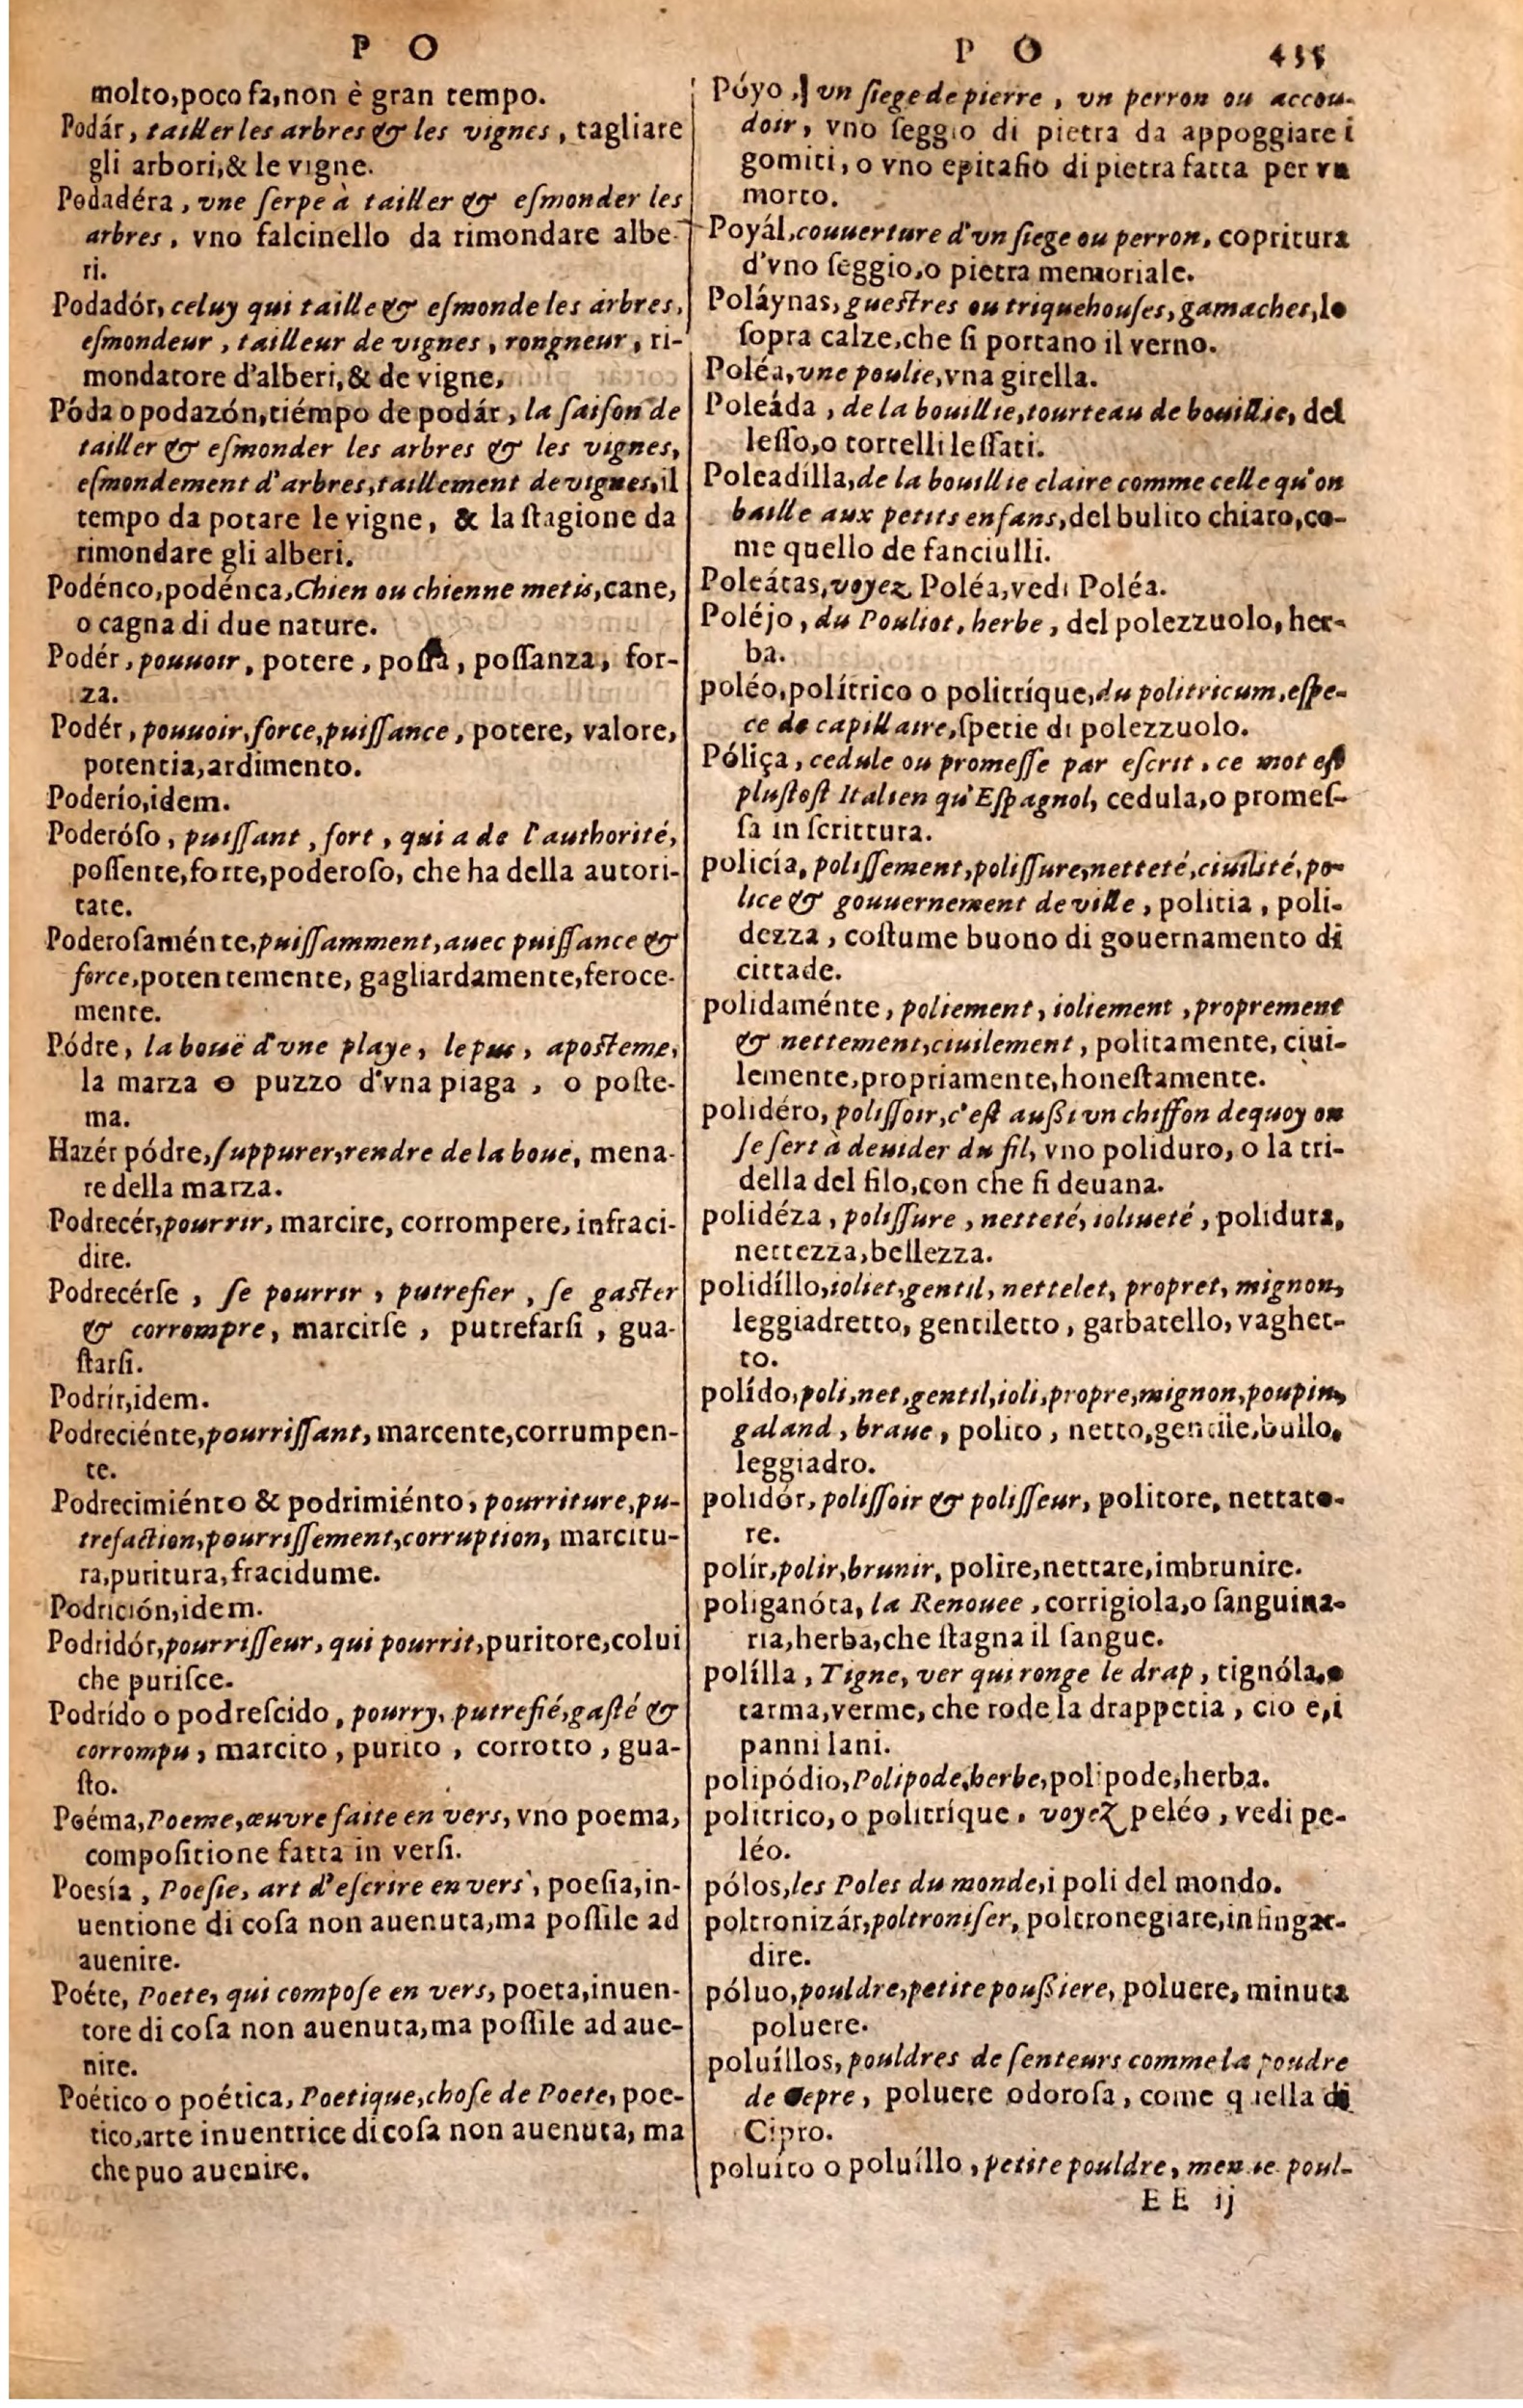 P O
molto,poco fa,non è gran tempo.
Podár, tailler les arbres & les vignes, tagliare
gli arbori,& le vigne.
Podadéra, vne ſerpe à tailler & eſmonder les
arbres, vno falcinello da rimondare albe-
ri.
Podadór, celuy qui taille & eſmonde les arbres,
eſmondeur, tailleur de vignes, rongneur, ri-
mondatore d'alberi,& de vigne,
Póda o podazón,tiémpo de podár, la ſaiſon de
tailler & eſmonder les arbres & les vignes,
eſmondement d'arbres,taillement de vignes,il
tempo da potare le vigne, & la ſtagione da
rimondare gli alberi.
Podénco,podénca,Chien ou chienne metis,cane,
o cagna di due nature.
Podér, pouuoir, potere, poſſa, poſſanza, for-
za.
Podér, pouuoir,force,puiſſance, potere, valore,
potentia,ardimento.
Poderío,idem.
Poderóſo, puiſſant, fort, qui a de l'authorité,
poſſente,forte,poderoſo, che ha della autori-
tate.
Poderoſaménte,puiſſamment,auec puiſſance &
force,potentemente, gagliardamente,feroce-
mente.
Pódre, la bouë d'vne playe, le pus, apoſteme,
la marza o puzzo d'vna piaga, o poſte-
ma.
Hazér pódre,ſuppurer,rendre de la boue, mena-
re della marza.
Podrecér,pourrir, marcire, corrompere, infraci-
dire.
Podrecérſe, ſe pourrir, putrefier, ſe gaſter
& corrompre, marcirſe, putrefarſi, gua-
ſtarſi.
Podrír,idem.
Podreciénte,pourriſſant, marcente,corrumpen-
te.
Podrecimiénto & podrimiénto, pourriture,pu-
trefaction,pourriſſement,corruption, marcitu-
ra,puritura,fracidume.
Podrición,idem.
Podridór,pourriſſeur, qui pourrit,puritore,colui
che puriſce.
Podrído o podreſcido, pourry, putrefié,gaſté &
corrompu, marcito, purito, corrotto, gua-
ſto.
Poéma,Poeme,œuvre faite en vers, vno poema,
compoſitione fatta in verſi.
Poesía, Poeſie, art d'eſcrire en vers, poeſia,in-
uentione di coſa non auenuta,ma poſſile ad
auenire.
Poéte, Poete, qui compoſe en vers, poeta,inuen-
tore di coſa non auenuta,ma poſſile ad aue-
nire.
Poético o poética, Poetique,choſe de Poete, poe-
tico,arte inuentrice di coſa non auenuta, ma
che puo auenire.
P O 435
Póyo, vn ſiege de pierre, vn perron ou accou-
doir, vno ſeggio di pietra da appoggiare i
gomiti, o vno epitafio di pietra fatta per vn
morto.
Poyál,couuerture d'vn ſiege ou perron, copritura
d'vno ſeggio,o pietra memoriale.
Poláynas, gueſtres ou triquehouſes,gamaches,le
ſopra calze,che ſi portano il verno.
Poléa,vne poulie,vna girella.
Poleáda, de la bouillie,tourteau de bouillie, del
leſſo,o tortelli leſſati.
Poleadílla,de la bouillie claire comme celle qu'on
baille aux petits enfans,del bulito chiaro,co-
me quello de fanciulli.
Poleátas,voyez Poléa,vedi Poléa.
Poléjo, du Pouliot, herbe, del polezzuolo, her-
ba.
poléo,polítrico o politríque,du politricum,eſpe-
ce de capillaire,ſpetie di polezzuolo.
Póliça, cedule ou promeſſe par eſcrit, ce mot eſt
pluſtoſt Italien qu'Eſpagnol, cedula,o promeſ-
ſa in ſcrittura.
policía, poliſſement,poliſſure,netteté,ciuilité,po-
lice & gouuernement de ville, politia, poli-
dezza, coſtume buono di gouernamento di
cittade.
polidaménte, poliement, ioliement, proprement
& nettement,ciuilement, politamente, ciui-
lemente,propriamente,honeſtamente.
polidéro, poliſſoir,c'eſt auſſi vn chiffon dequoy on
ſe ſert à deuider du fil, vno poliduro, o la tri-
della del filo,con che ſi deuana.
polidéza, poliſſure, netteté, iolineté, polidura,
nettezza,bellezza.
polidíllo,ioliet,gentil, nettelet, propret, mignon,
leggiadretto, gentiletto, garbatello, vaghet-
to.
polído,poli,net,gentil,ioli,propre,mignon,poupin,
galand, braue, polito, netto,gentile,bullo,
leggiadro.
polidór, poliſſoir & poliſſeur, politore, nettato-
re.
polír,polir,brunir, polire,nettare,imbrunire.
poliganóta, la Renouee, corrigiola,o ſanguina-
ria,herba,che ſtagna il ſangue.
polílla, Tigne, ver qui ronge le drap, tignóla,o
tarma,verme, che rode la drapperia, cio e,i
panni lani.
polipódio,Polipode,herbe,polipode,herba.
politrico, o politríque, voyez peléo, vedi pe-
léo.
pólos,les Poles du monde,i poli del mondo.
poltronizár,poltroniſer, poltronegiare,infingar-
dire.
póluo,pouldre,petite pouſſiere, poluere, minuta
poluere.
poluíllos, pouldres de ſenteurs comme la poudre
de Cepre, poluere odoroſa, come quella di
Cipro.
poluíto o poluíllo, petite pouldre, menue poul-
EE ij